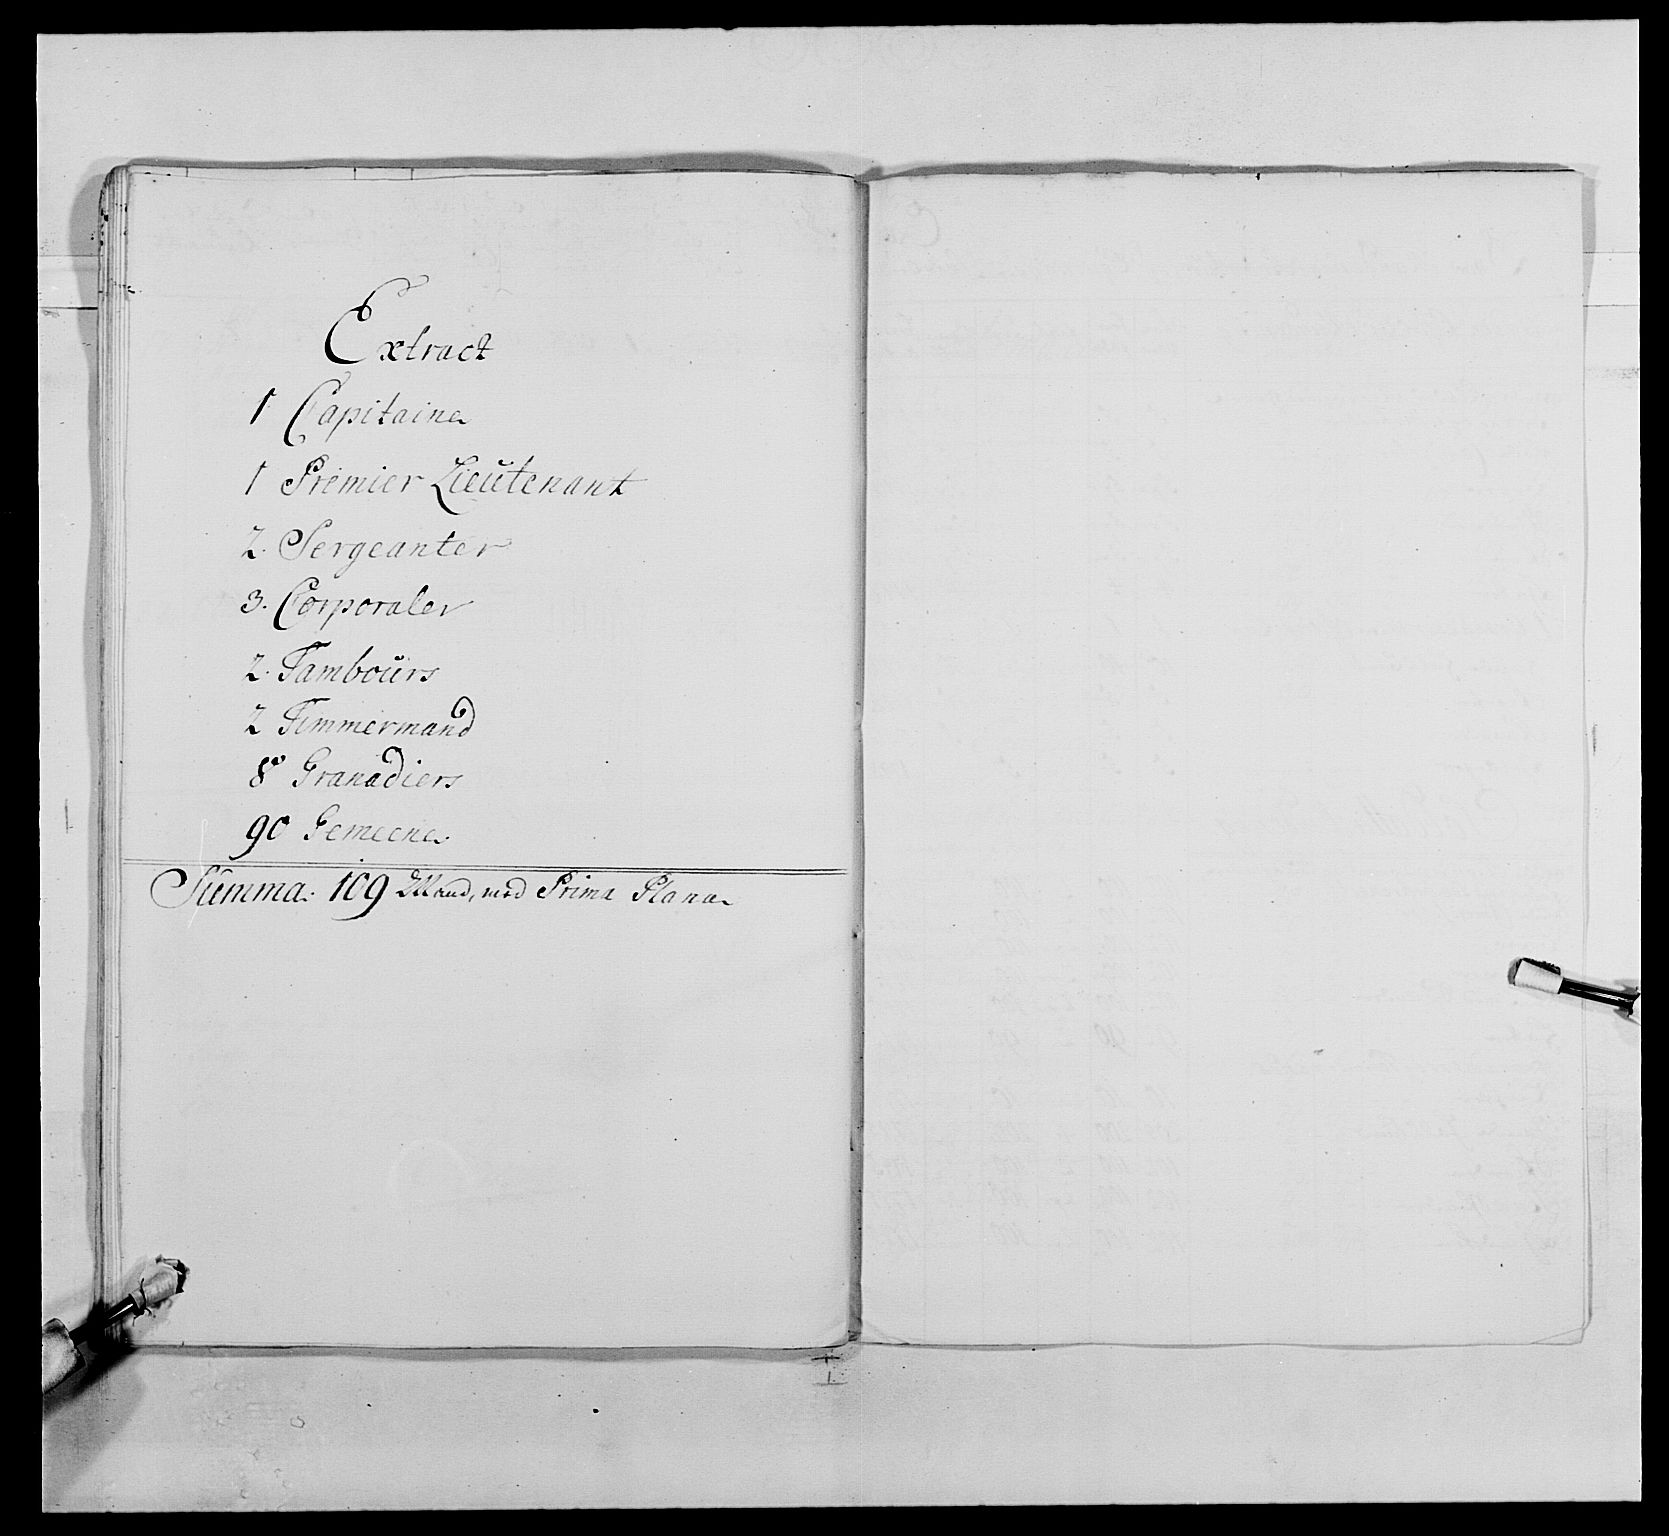 Extract
1 Capitaine
1 Premier Lieutenant
2. Sergeanter
3. Corporaler
2. Tambours
2 Timmermand
8 Granadiers
90 Gemeene.
Summa: 109 Mand, med Prima Plana